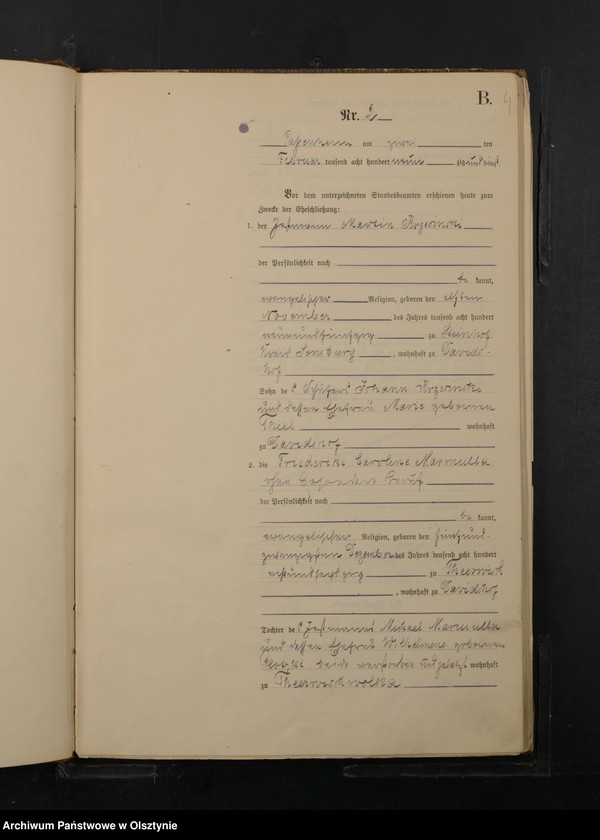 B.
4
Nr. 2
Passenheim am zwei ten
Februar tausend acht hundert neun zig und eins
Vor dem unterzeichneten Standesbeamten erschienen heute zum
Zwecke der Eheschließung:
1. der Instmann Martin
der Persönlichkeit nach
be kannt,
evangelischer Religion, geboren den elften
November des Jahres tausend acht hundert
zu Steinhof
Kreis Sensburg, wohnhaft zu Davids-
hof
Sohn des Johann
und dessen Ehefrau Marie geborenen
Thiel wohnhaft
zu Davidshof
2. die Friedericke Caroline Marmulla
ohne besonderen Beruf
der Persönlichkeit nach
be kannt,
evangelischer Religion, geboren den fünfund-
zwanzigsten Dezember des Jahres tausend acht hundert
zu Theerwisch
, wohnhaft zu Davidshof
Tochter des Instmanns Michael Marmulla
und dessen Ehefrau Wilhelmine geborenen
beide verstorben und zuletzt wohnhaft
zu Theerwischwolka
Archiwum Państwowe w Olsztynie